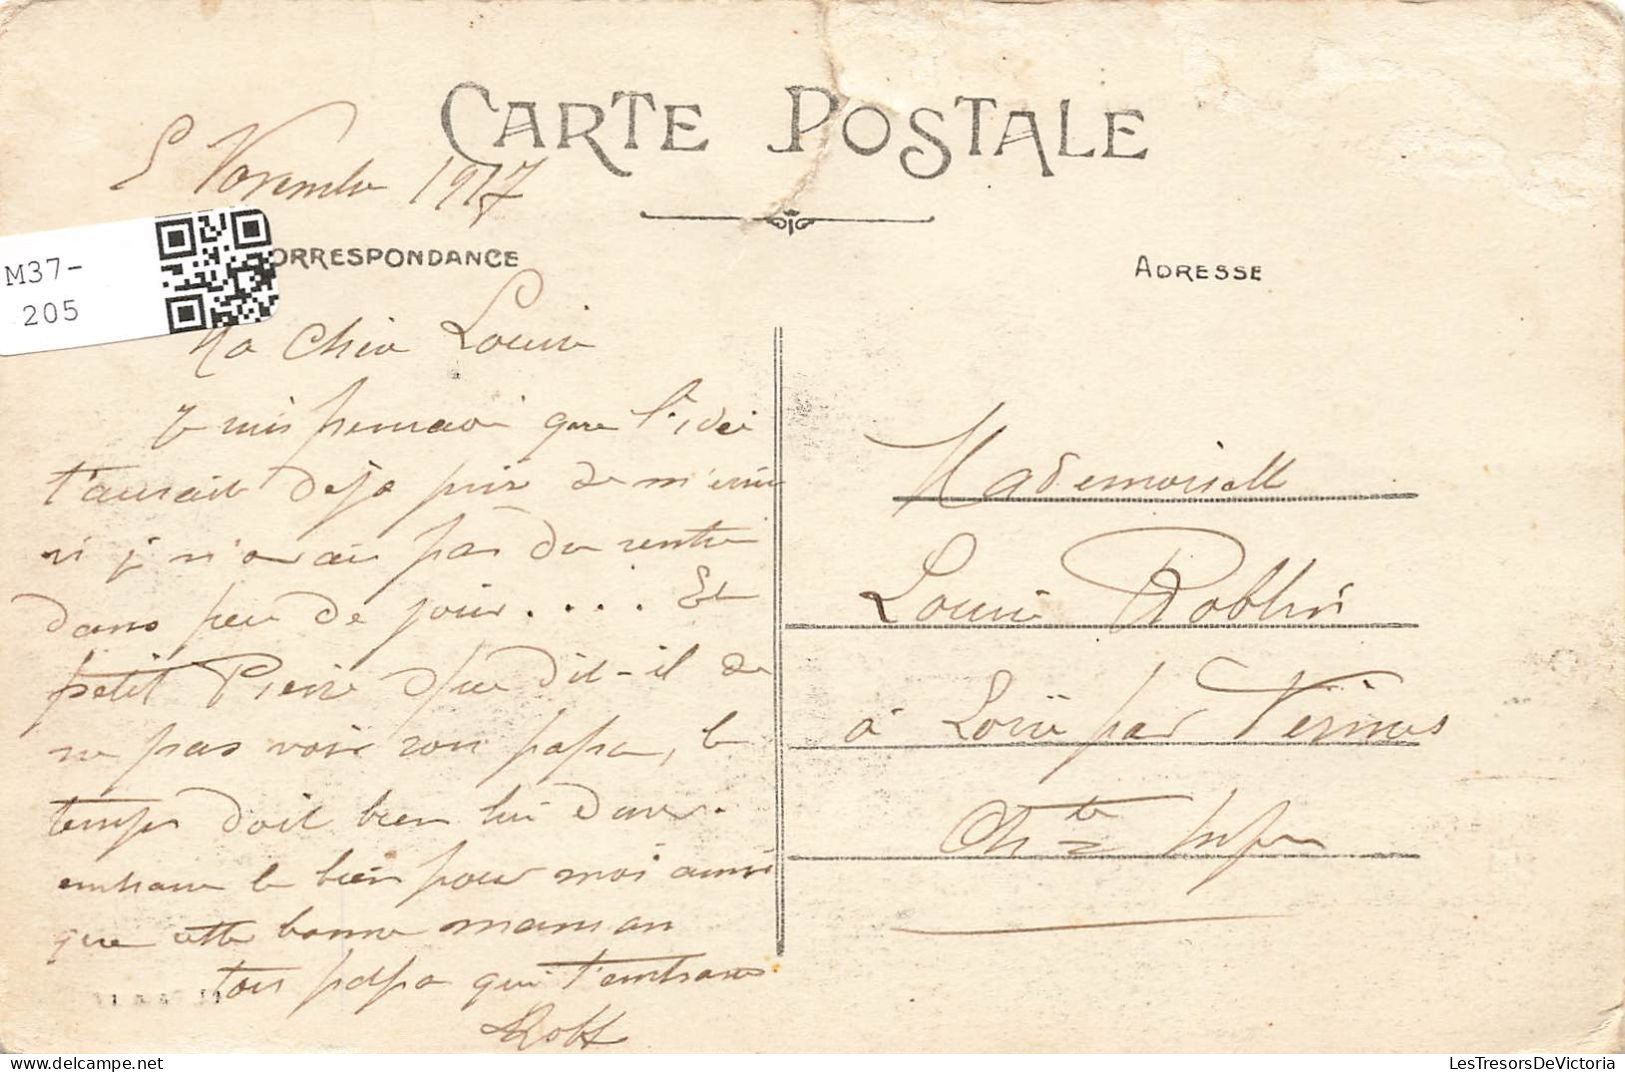 CARTE POSTALE
5 Novembre 1917
M37-
205
ORRESPONDANCE
ADRESSE
Ma chère Louise
que l'idée
t'aurait déjà prise de m'écrire
si je n'avais pas du rentrer
dans peu de jour.... Et
petit Pierre que dit-il de
ne pas voir son papa, le
temps doit bien lui durer.
embrasse le bien pour moi ainsi
que cette bonne maman
ton papa qui t'embrasse
Mademoiselle
Louise Roblin
à Loiré par Vérines
Chte Infre
LesTresorsDeVictoria